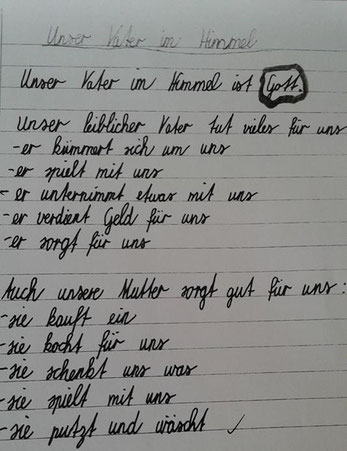 Unser Vater im Himmel
Unser Vater im Himmel ist Gott.
Unser leiblicher Vater tut vieles für uns
-er kümmert sich um uns
-er spielt mit uns
-er unternimmt etwas mit uns
-er verdient Geld für uns
-er sorgt für uns
Auch unsere Mutter sorgt gut für uns:
-sie kauft ein
-sie kocht für uns
-sie schenkt uns was
-sie spielt mit uns
-sie putzt und wäscht ✓